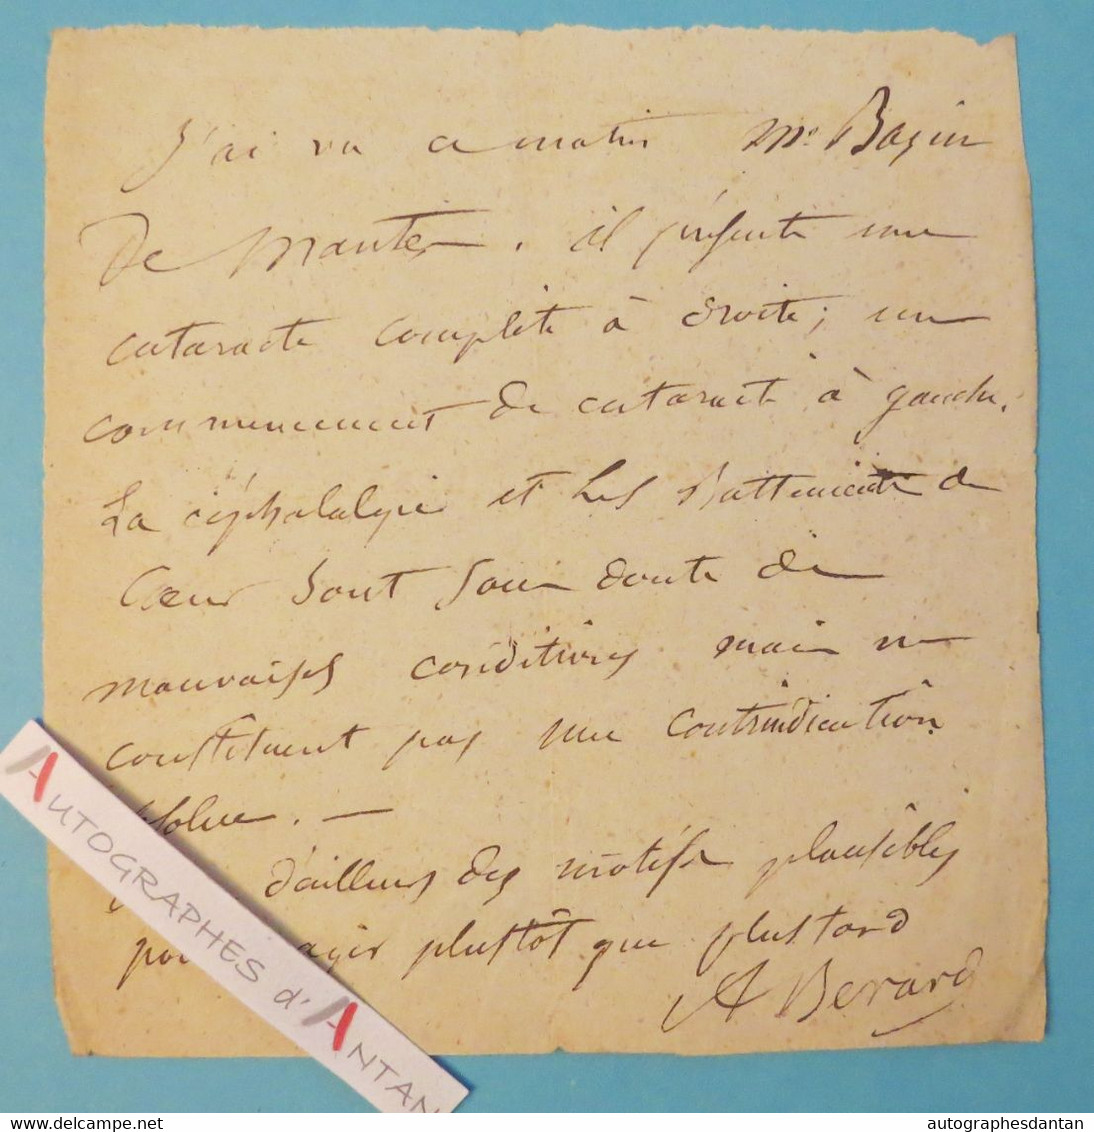 J'ai vu ce matin Mr Bazin
de Mantes. il présente une
cataracte complète à droite; un
commencement de cataracte à gauche.
La céphalalgie et les battements de
Cœur sont sans doute de
mauvaises conditions mais ne
constituent pas une contrindication
absolue. —
d'ailleurs des motifs plausibles
pour agir plustôt que plustard
A Berard
AUTOGRAPHES d'ANTAN
autographesdantan